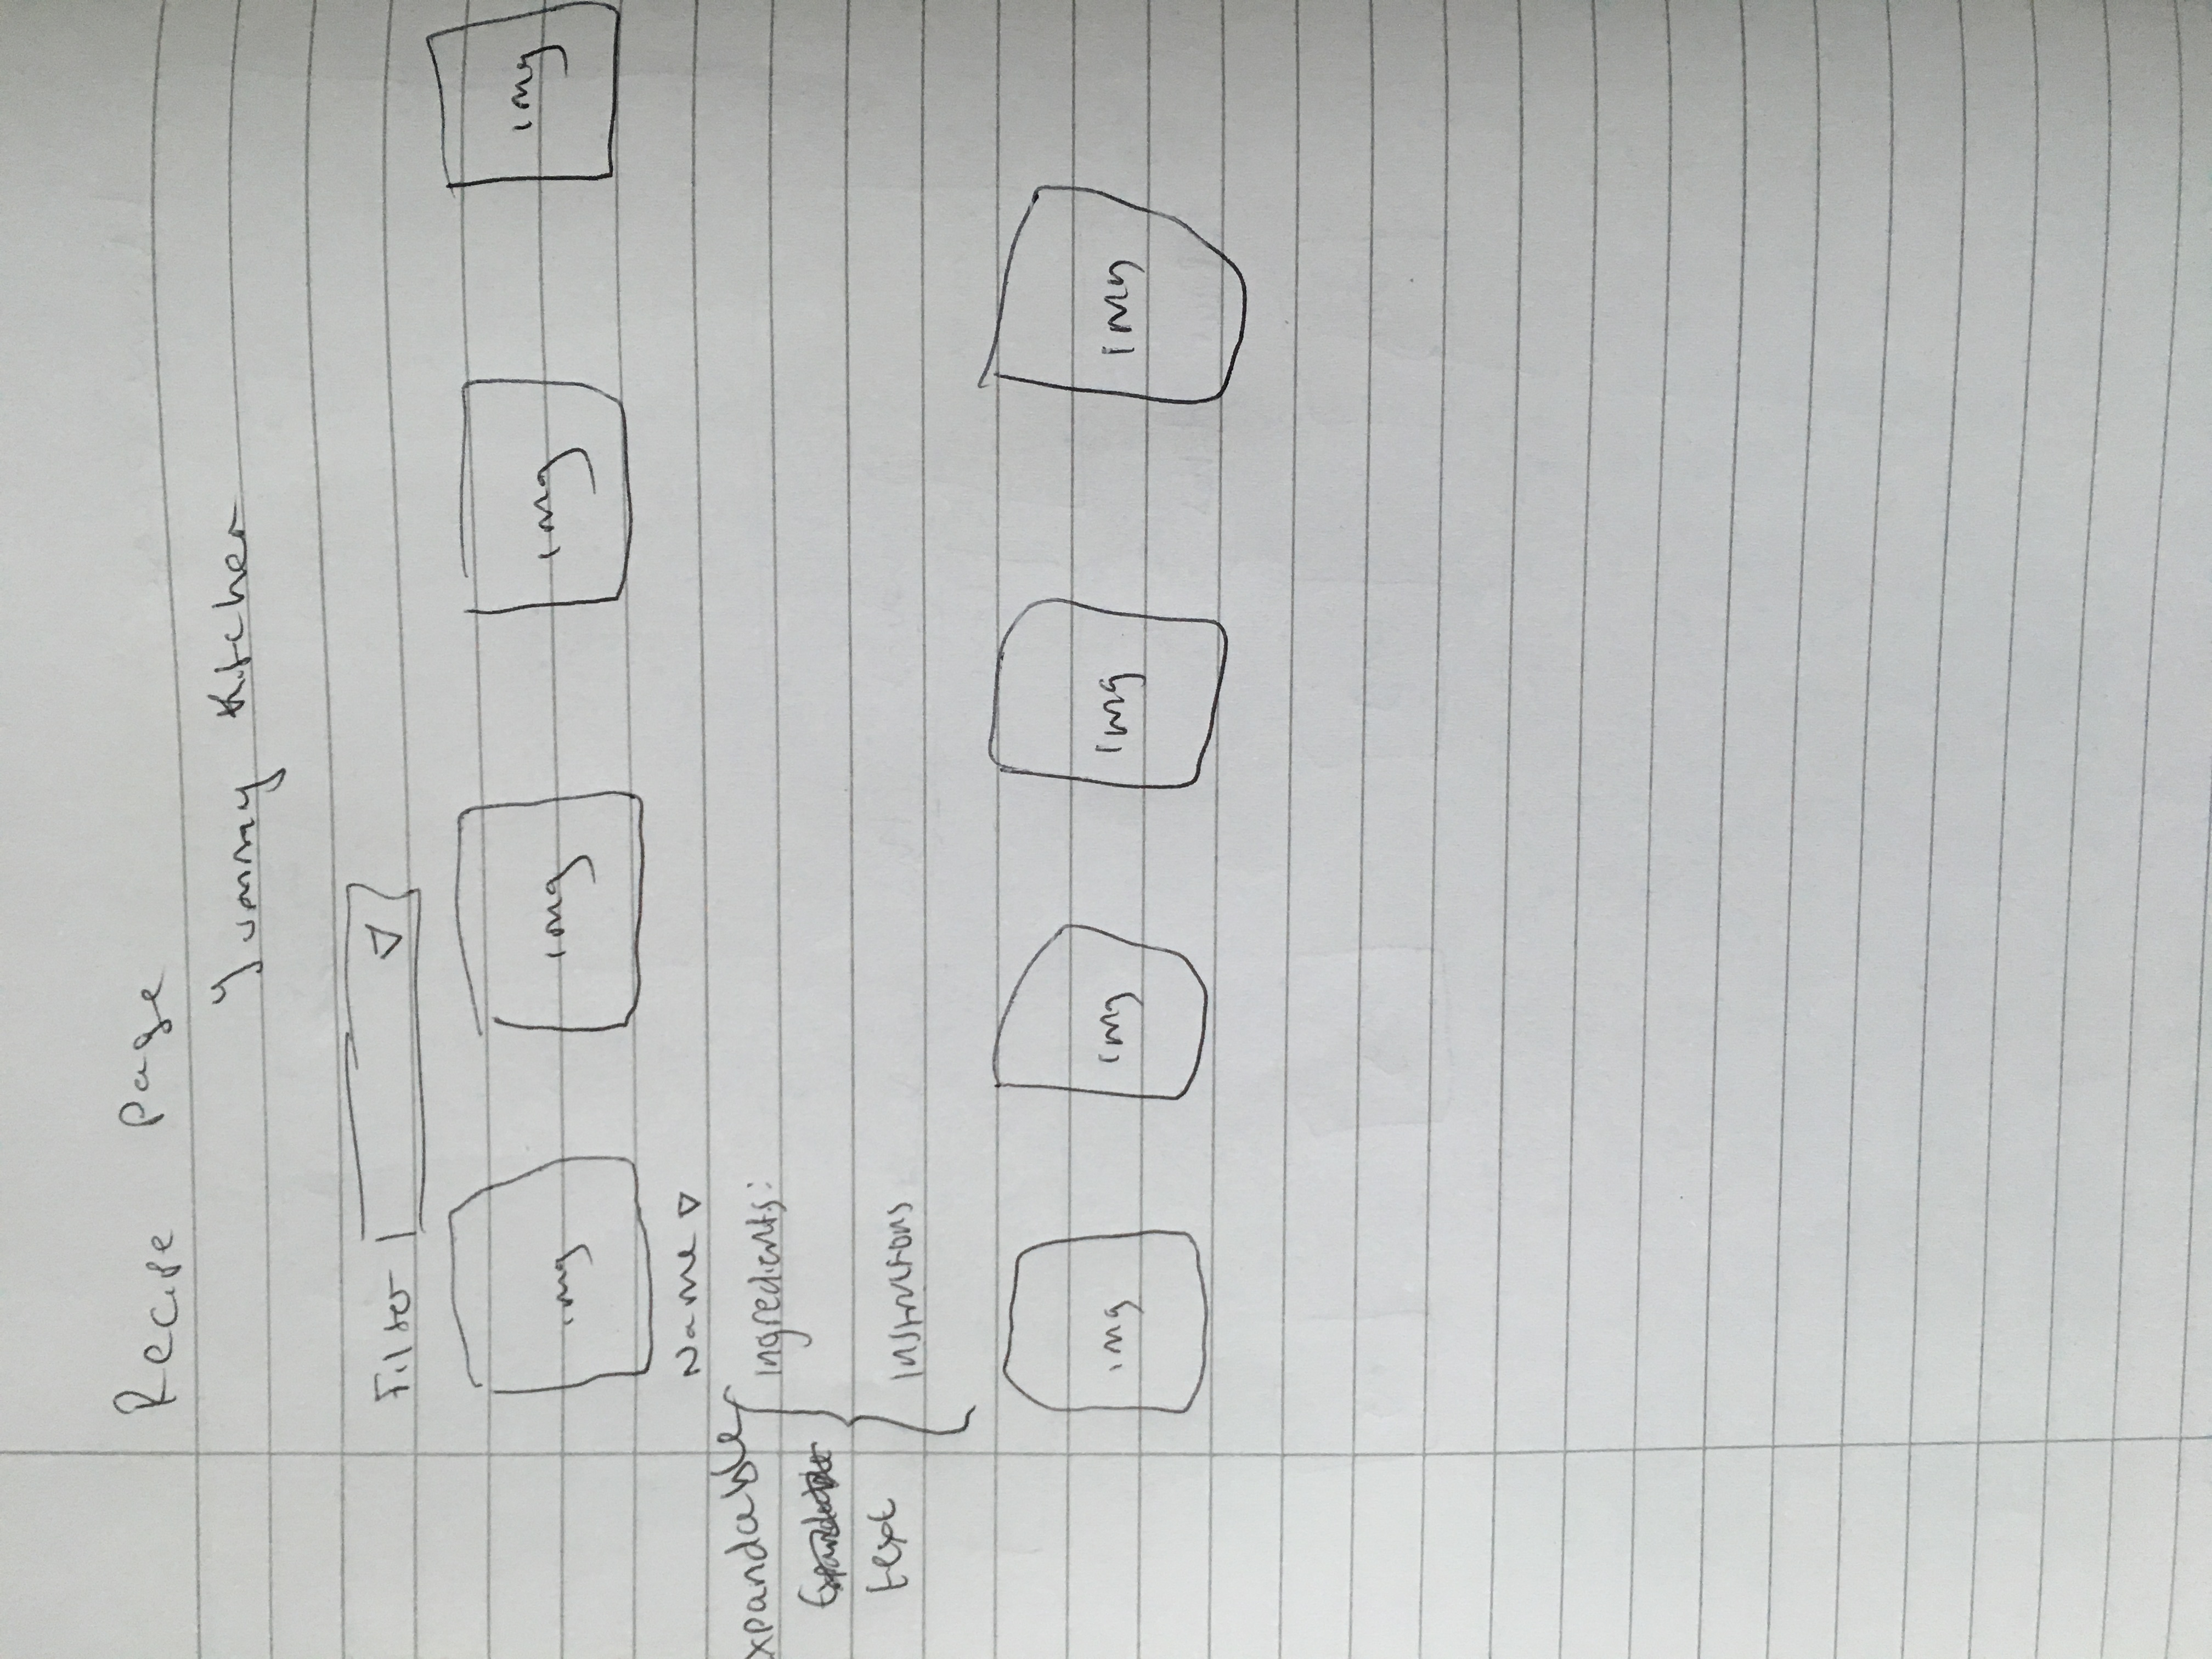 Recipe Page
Yummy Kitchen
Filter
img img img img
Name
Expandable
text
Ingredients:
Instructions
img img img img